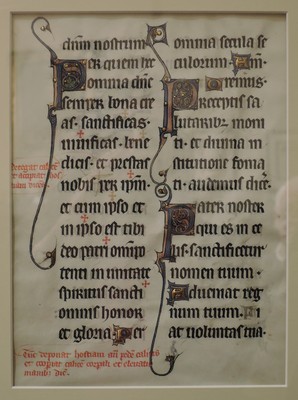 dnm nostrum
Per quem hec
omnia dne
semper bona cre
as· sanctificas·
uiuificas· bene
dicis· et prestas
nobis per ipm·
et cum ipso et
in ipso est tibi
deo patri omipo
tenti in unitate
spiritus sancti
omnis honor
et gloria Per
omnia secula se
culorum· Am·
Oremus·
Preceptis sa
lutaribus moni
ti· et diuina in
stitutione forma
ti· audemus dice·
Pater noster
qui es in ce
lis· sanctificetur
nomen tuum·
Adueniat reg
num tuum· Fi
at uoluntas tua·